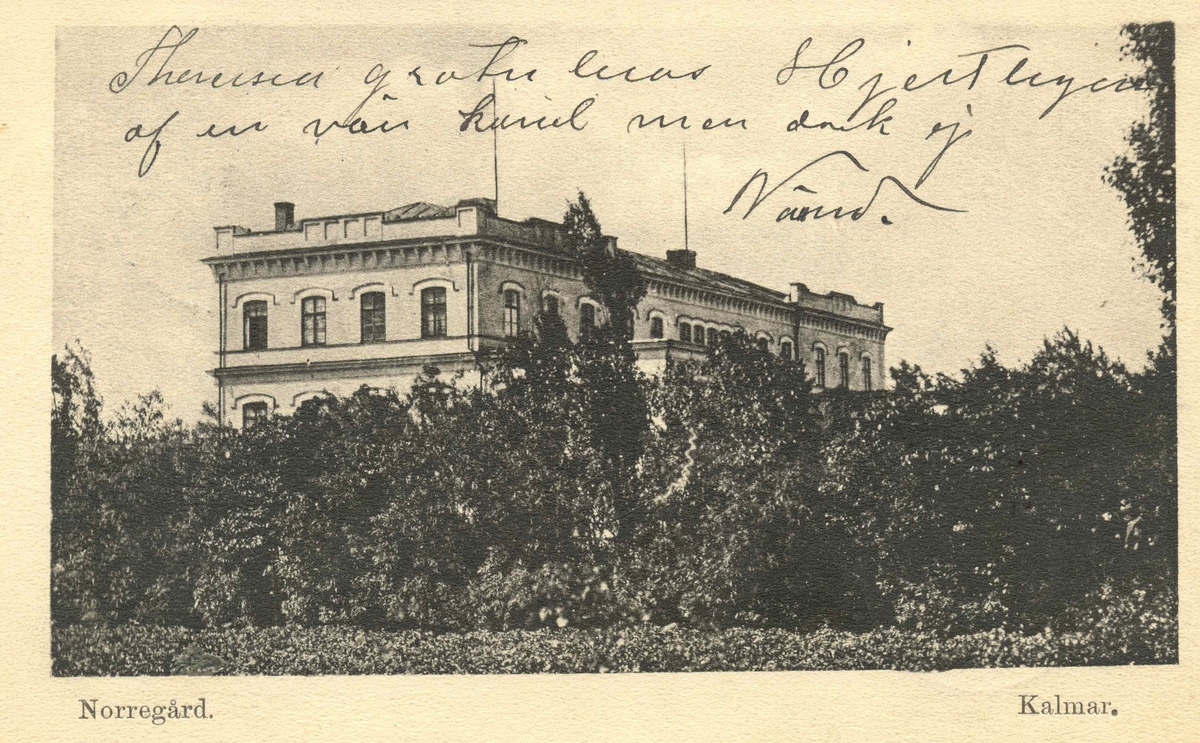 Theresia gratuleras Hjertligen
af en vän känd men dock ej
Nämd.
Norregård.
Kalmar.